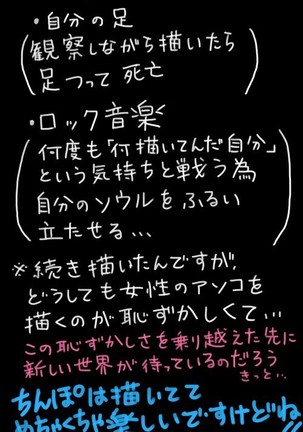 ・自分の足
(観察しながら描いたら
足つって 死亡)
・ロック音楽
(何度も「何描いてんだ自分」
という気持ちと戦う為
自分のソウルをふるい
立たせる…)
※続き描いたんですが、
どうしても女性のアソコを
描くのが恥ずかしくて…
この恥ずかしさを乗り越えた先に
新しい世界が待っているのだろう
きっと…
ちんぽは描いてて
めちゃくちゃ楽しいですけどね!!